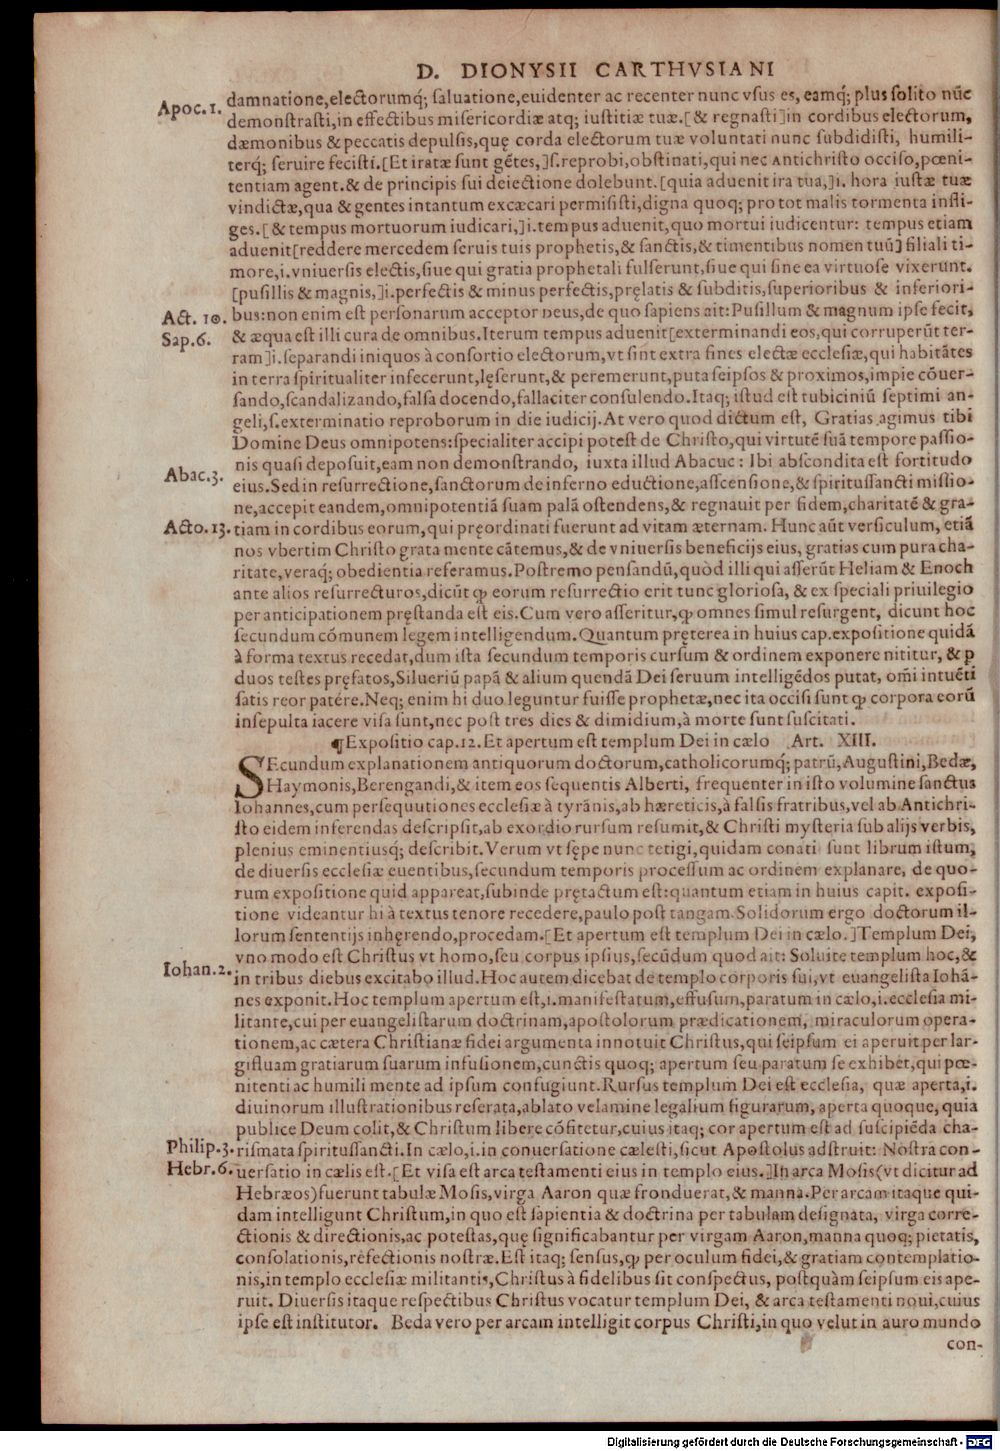 D. DIONYSII CARTHVSIANI
Apoc. 1. damnatione,electorumq́; ſaluatione,euidenter ac recenter nunc vſus es, eamq́; plus ſolito nūc
demonſtraſti,in effectibus miſericordiæ atq; iuſtitiæ tuæ.[& regnaſti]in cordibus electorum,
dæmonibus & peccatis depulſis,quę corda electorum tuæ voluntati nunc ſubdidiſti, humili-
terq́; ſeruire feciſti.[Et iratæ ſunt gētes,]ſ.reprobi,obſtinati,qui nec Antichriſto occiſo,pœni-
tentiam agent.& de principis ſui deiectione dolebunt.[quia aduenit ira tua,]i. hora iuſtæ tuæ
vindictæ,qua & gentes intantum excæcari permiſiſti,digna quoq; pro tot malis tormenta infli-
ges.[& tempus mortuorum iudicari,]i.tempus aduenit,quo mortui iudicentur: tempus etiam
aduenit[reddere mercedem ſeruis tuis prophetis,& ſanctis,& timentibus nomen tuū] filiali ti-
more,i.vniuerſis electis,ſiue qui gratia prophetali fulſerunt,ſiue qui ſine ea virtuoſe vixerunt.
[puſillis & magnis,]i.perfectis & minus perfectis,pręlatis & ſubditis,ſuperioribus & inferiori-
Act. 10. bus:non enim eſt perſonarum acceptor Deus,de quo ſapiens ait: Puſillum & magnum ipſe fecit,
Sap.6. & æqua eſt illi cura de omnibus.Iterum tempus aduenit[exterminandi eos,qui corruperūt ter-
ram]i.ſeparandi iniquos à conſortio electorum,vt ſint extra fines electæ eccleſiæ,qui habitātes
in terra ſpiritualiter infecerunt,lęſerunt,& peremerunt,puta ſeipſos & proximos,impie cōuer-
ſando,ſcandalizando,falſa docendo,fallaciter conſulendo.Itaq; iſtud eſt tubiciniū ſeptimi an-
geli,ſ.exterminatio reproborum in die iudicij.At vero quod dictum eſt, Gratias agimus tibi
Domine Deus omnipotens:ſpecialiter accipi poteſt de Chriſto,qui virtutē ſuā tempore paſſio-
Abac.3. nis quaſi depoſuit,eam non demonſtrando, iuxta illud Abacuc: Ibi abſcondita eſt fortitudo
eius.Sed in reſurrectione,ſanctorum de inferno eductione,aſſcenſione,& ſpirituſſancti miſſio-
ne,accepit eandem,omnipotentiā ſuam palā oſtendens,& regnauit per fidem,charitatē & gra-
Acto.13. tiam in cordibus eorum,qui pręordinati fuerunt ad vitam æternam. Hunc aūt verſiculum, etiā
nos vbertim Chriſto grata mente cātemus,& de vniuerſis beneficijs eius, gratias cum pura cha-
ritate,veraq́; obedientia referamus.Poſtremo penſandū,quòd illi qui aſſerūt Heliam & Enoch
ante alios reſurrecturos,dicūt ꝙ eorum reſurrectio erit tunc glorioſa, & ex ſpeciali priuilegio
per anticipationem pręſtanda eſt eis.Cum vero aſſeritur,ꝙ omnes ſimul reſurgent, dicunt hoc
ſecundum cómunem legem intelligendum.Quantum pręterea in huius cap.expoſitione quidā
à forma textus recedat,dum iſta ſecundum temporis curſum & ordinem exponere nititur, & p
duos teſtes pręfatos,Silueriū papā & alium quendā Dei ſeruum intelligēdos putat, om̄i intuēti
ſatis reor patére.Neq; enim hi duo leguntur fuiſſe prophetæ,nec ita occiſi ſunt ꝙ corpora eorū
inſepulta iacere viſa ſunt,nec poſt tres dies & dimidium,à morte ſunt ſuſcitati.
¶Expoſitio cap.12.Et apertum eſt templum Dei in cælo Art. XIII.
SEcundum explanationem antiquorum doctorum,catholicorumq́; patrū,Auguſtini,Bedæ,
Haymonis,Berengandi,& item eos ſequentis Alberti, frequenter in iſto volumine ſanctus
Iohannes,cum perſequutiones eccleſiæ à tyrānis,ab hæreticis,à falſis fratribus,vel ab Antichri-
ſto eidem inferendas deſcripſit,ab exordio rurſum reſumit,& Chriſti myſteria ſub alijs verbis,
plenius eminentiusq́; deſcribit.Verum vt ſępe nunc tetigi,quidam conati ſunt librum iſtum,
de diuerſis eccleſiæ euentibus,ſecundum temporis proceſſum ac ordinem explanare, de quo-
rum expoſitione quid appareat,ſubinde prętactum eſt:quantum etiam in huius capit. expoſi-
tione videantur hi à textus tenore recedere,paulo poſt tangam.Solidorum ergo doctorum il-
lorum ſententijs inhęrendo,procedam.[Et apertum eſt templum Dei in cælo.]Templum Dei,
vno modo eſt Chriſtus vt homo,ſeu corpus ipſius,ſecūdum quod ait: Soluite templum hoc,&
Iohan.2. in tribus diebus excitabo illud.Hoc autem dicebat de templo corporis ſui,vt euangeliſta Iohā-
nes exponit.Hoc templum apertum eſt,i.manifeſtatum,effuſum,paratum in cælo,i.eccleſia mi-
litante,cui per euangeliſtarum doctrinam,apoſtolorum prædicationem, miraculorum opera-
tionem,ac cætera Chriſtianæ fidei argumenta innotuit Chriſtus,qui ſeipſum ei aperuit per lar-
gifluam gratiarum ſuarum infuſionem,cunctis quoq; apertum ſeu paratum ſe exhibet,qui pœ-
nitenti ac humili mente ad ipſum confugiunt.Rurſus templum Dei eſt eccleſia, quæ aperta,i.
diuinorum illuſtrationibus reſerata,ablato velamine legalium figurarum, aperta quoque, quia
publice Deum colit,& Chriſtum libere cōfitetur,cuius itaq; cor apertum eſt ad ſuſcipiēda cha-
Philip.3. riſmata ſpirituſſancti.In cælo,i.in conuerſatione cæleſti,ſicut Apoſtolus adſtruit: Noſtra con-
Hebr.6. uerſatio in cælis eſt.[Et viſa eſt arca teſtamenti eius in templo eius.]In arca Moſis(vt dicitur ad
Hebræos)fuerunt tabulæ Moſis,virga Aaron quæ fronduerat,& manna.Per arcam itaque qui-
dam intelligunt Chriſtum,in quo eſt ſapientia & doctrina per tabulam deſignata, virga corre-
ctionis & directionis,ac poteſtas,quę ſignificabantur per virgam Aaron,manna quoq; pietatis,
conſolationis,refectionis noſtræ.Eſt itaq; ſenſus,ꝙ per oculum fidei,& gratiam contemplatio-
nis,in templo eccleſiæ militantis,Chriſtus à fidelibus ſit conſpectus, poſtquàm ſeipſum eis ape-
ruit. Diuerſis itaque reſpectibus Chriſtus vocatur templum Dei, & arca teſtamenti noui,cuius
ipſe eſt inſtitutor. Beda vero per arcam intelligit corpus Chriſti,in quo velut in auro mundo
con-
Digitalisierung gefördert durch die Deutsche Forschungsgemeinschaft - DFG